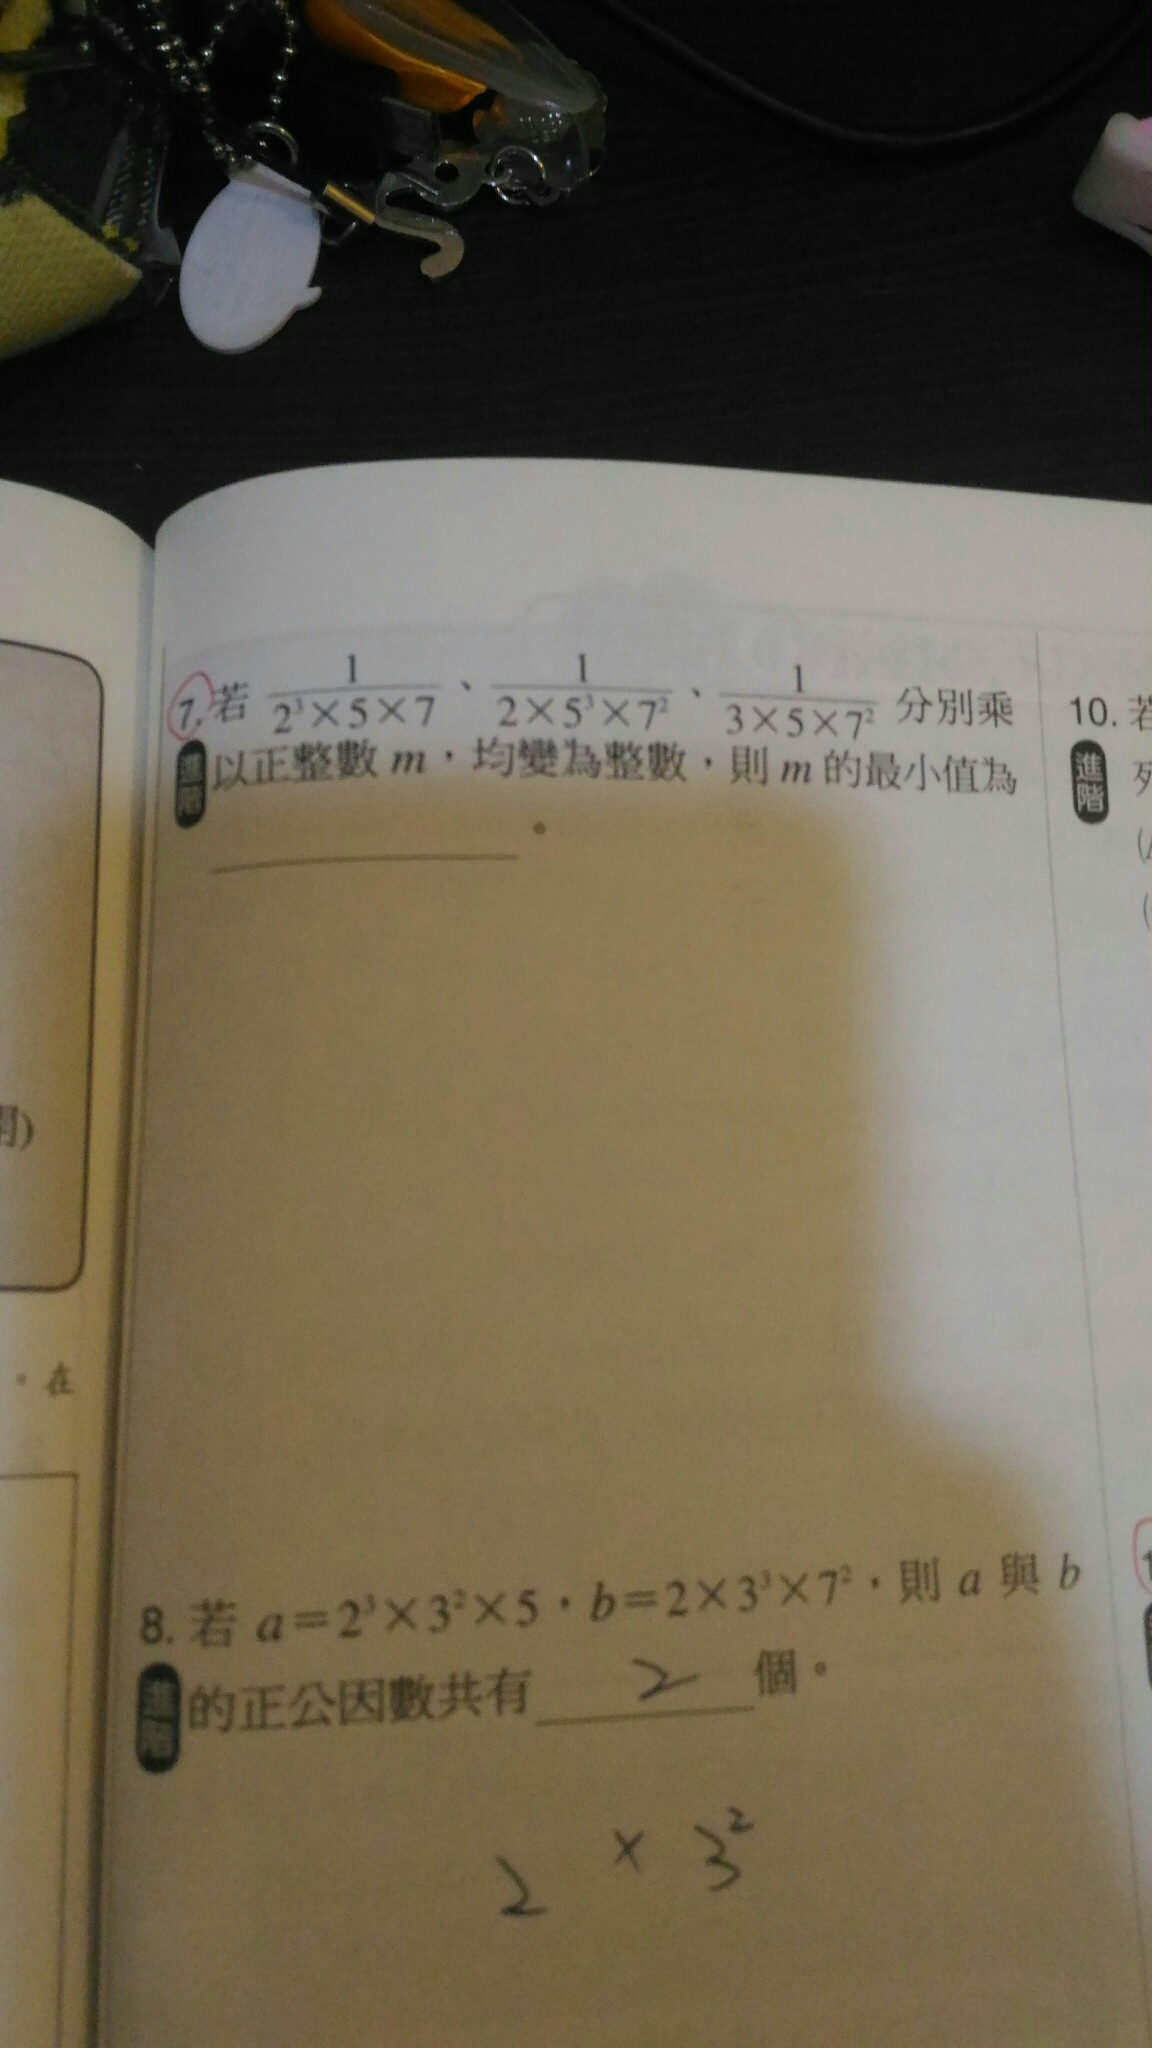 7. 若 1/(2³×5×7)、1/(2×5³×7²)、1/(3×5×7²) 分別乘
進階 以正整數 m，均變為整數，則 m 的最小值為
________。
8. 若 a=2³×3²×5，b=2×3³×7²，則 a 與 b
進階 的正公因數共有 2 個。
2 × 3²
10. 若
進階
(
(
開)
。在